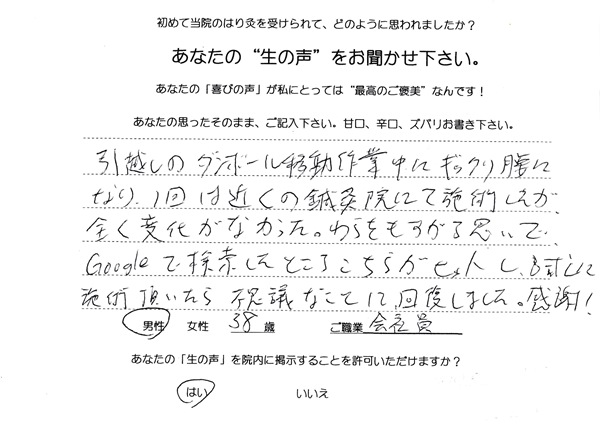 初めて当院のはり灸を受けられて、どのように思われましたか？
あなたの“生の声”をお聞かせ下さい。
あなたの「喜びの声」が私にとっては“最高のご褒美”なんです！
あなたの思ったそのまま、ご記入下さい。甘口、辛口、ズバリお書き下さい。
引越しのダンボール移動作業中にギックリ腰に
なり、1回は近くの鍼灸院にて施術したが、
全く変化がなかった。わらをもすがる思いで、
Googleで検索したところこちらがヒットし、
施術頂いたら不思議なことに、回復しました。感謝！
男性 女性 38 歳 ご職業 会社員
あなたの「生の声」を院内に掲示することを許可いただけますか？
はい いいえ